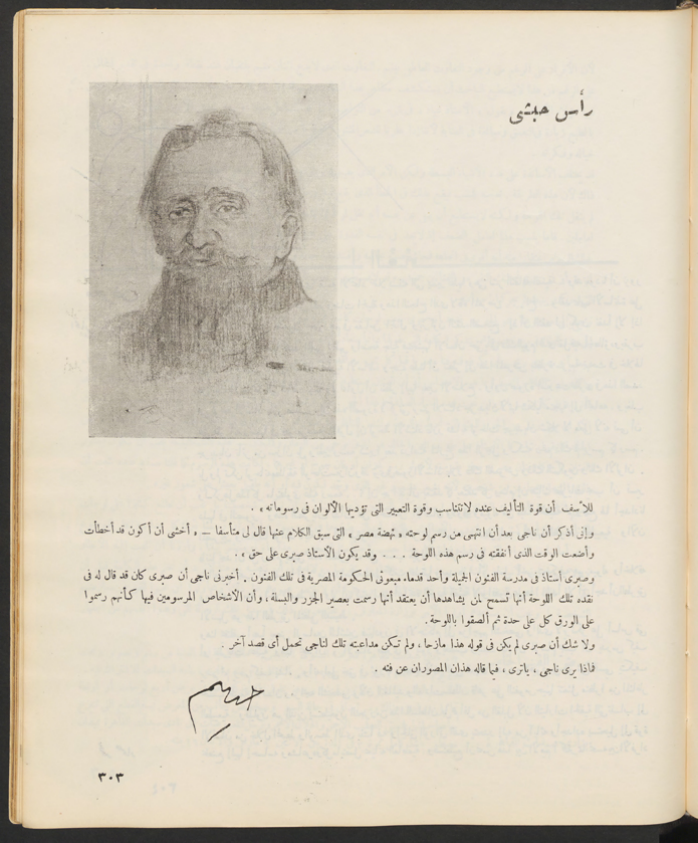 رأس حبشى
للأسف أن قوة التأليف عنده لا تتناسب وقوة التعبير التى تؤديها الألوان فى رسوماته » .
وإنى أذكر أن ناجى بعد أن انتهى من رسم لوحته « نهضة مصر » التى سبق الكلام عنها قال لى متأسفا — « أخشى أن أكون قد أخطأت
وأضعت الوقت الذى أنفقته فى رسم هذه اللوحة . . . وقد يكون الأستاذ صبرى على حق » .
وصبرى أستاذ فى مدرسة الفنون الجميلة وأحد قدماء مبعوثى الحكومة المصرية فى تلك الفنون . أخبرنى ناجى أن صبرى كان قد قال له فى
نقده تلك اللوحة أنها تسمح لمن يشاهدها أن يعتقد أنها رسمت بعصير الجزر والبسلة ، وأن الأشخاص المرسومين فيها كأنهم رسموا
على الورق كل على حدة ثم ألصقوا باللوحة .
ولا شك أن صبرى لم يكن فى قوله هذا مازحا ، ولم تكن مداعبته تلك لناجى تحمل أى قصد آخر .
فماذا يرى ناجى ، ياترى ، فيما قاله هذان المصوران عن فنه .
٣٠٣